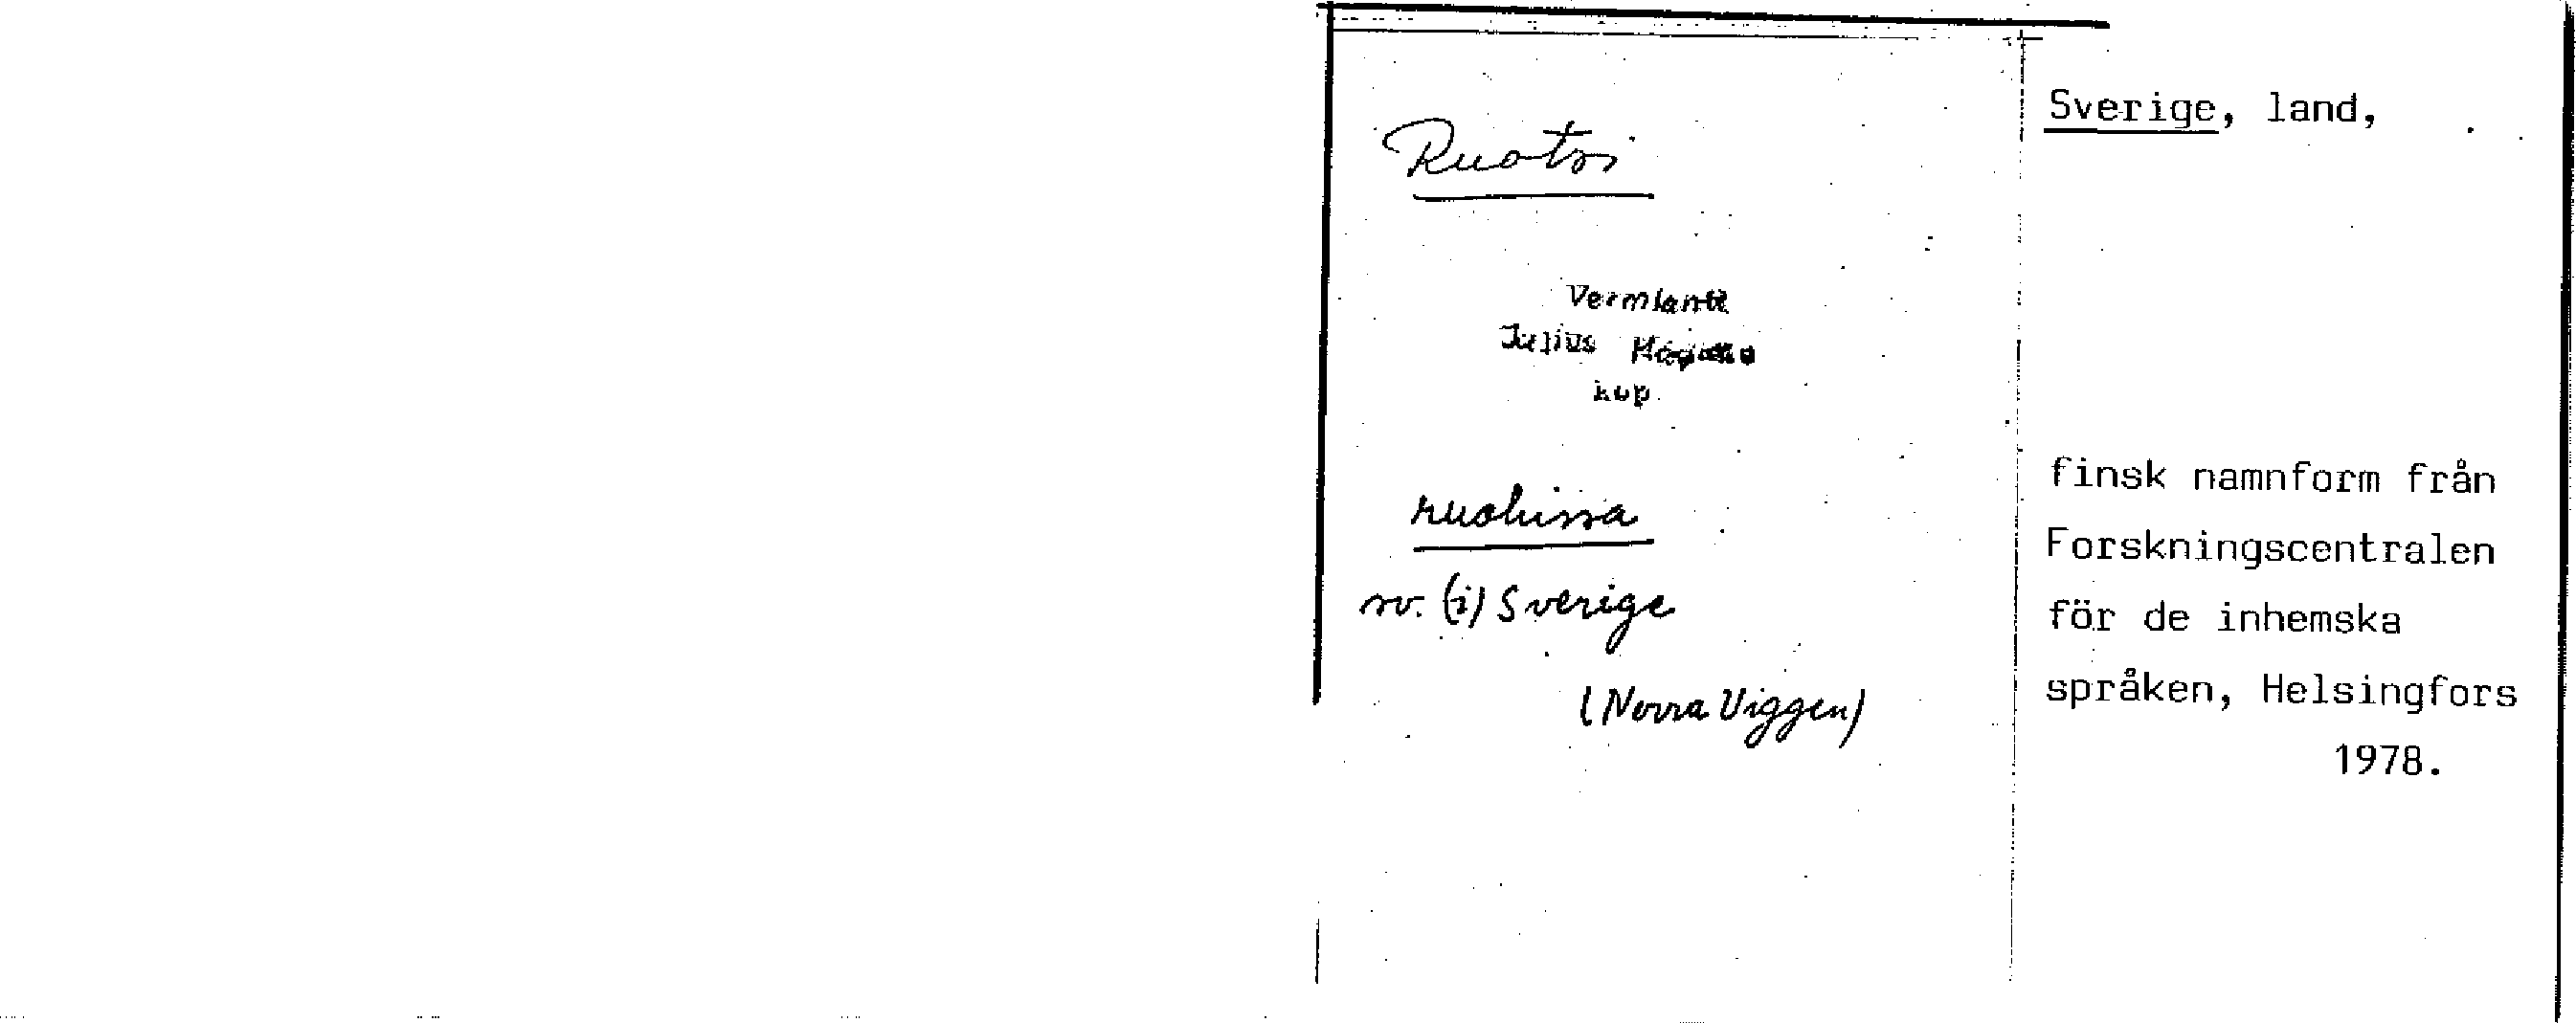 Ruotsi
Vermlanti
Julius Mägiste
kop
ruohissa
sv. (i) Sverige
(Norra Viggen)
Sverige, land,
finsk namnform från
Forskningscentralen
för de inhemska
språken, Helsingfors
1978.